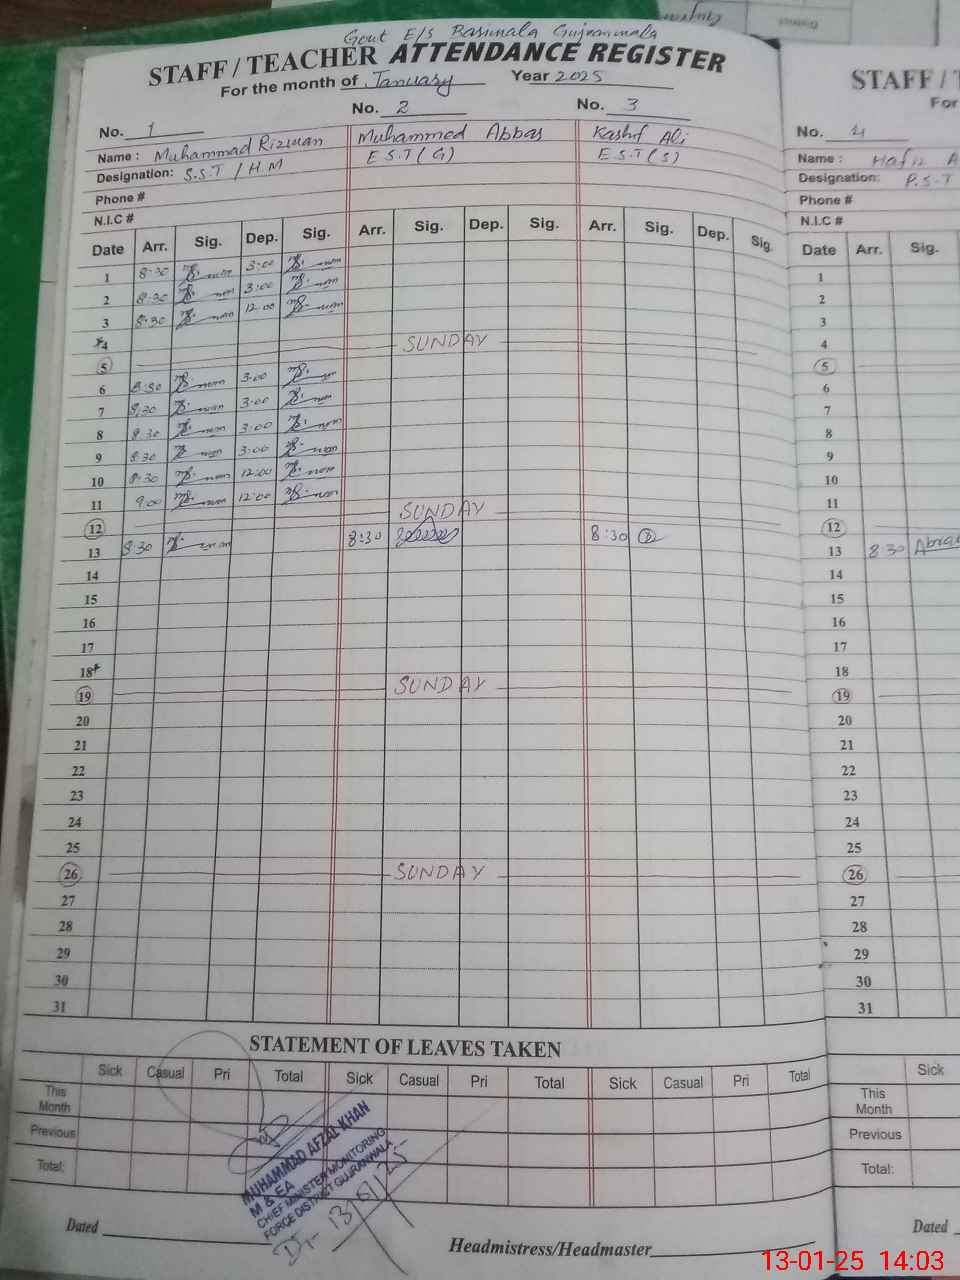 Govt E/S Basimala Gujranwala
STAFF / TEACHER ATTENDANCE REGISTER
For the month of January Year 2025
No. 1 No. 2 No. 3
Name : Muhammad Rizwan Muhammad Abbas Kashif Ali
Designation: S.S.T / H M E S.T (G) E S.T (S)
Phone #
N.I.C #
Date Arr. Sig. Dep. Sig. Arr. Sig. Dep. Sig. Arr. Sig. Dep. Sig.
1 8:30 3:00
2 8:30 3:00
3 8:30 12:00
*4 SUNDAY
5
6 8:30 3:00
7 8:30 3:00
8 8:30 3:00
9 8:30 3:00
10 8:30 12:00
11 9:00 12:00
12 SUNDAY
13 8:30 8:30 8:30
14
15
16
17
18*
19 SUNDAY
20
21
22
23
24
25
26 SUNDAY
27
28
29
30
31
STATEMENT OF LEAVES TAKEN
Sick Casual Pri Total Sick Casual Pri Total Sick Casual Pri Total
This Month
Previous
Total:
MUHAMMAD AFZAL KHAN
M & EA
CHIEF MINISTER MONITORING
FORCE DISTRICT GUJRANWALA
Dt- 13/01/25
Dated
Headmistress/Headmaster
STAFF / T
For
No. 4
Name : Hafiz A
Designation: P.S.T
Phone #
N.I.C #
Date Arr. Sig.
1
2
3
4
5
6
7
8
9
10
11
12
13 8 30
14
15
16
17
18
19
20
21
22
23
24
25
26
27
28
29
30
31
Sick
This Month
Previous
Total:
Dated
13-01-25 14:03